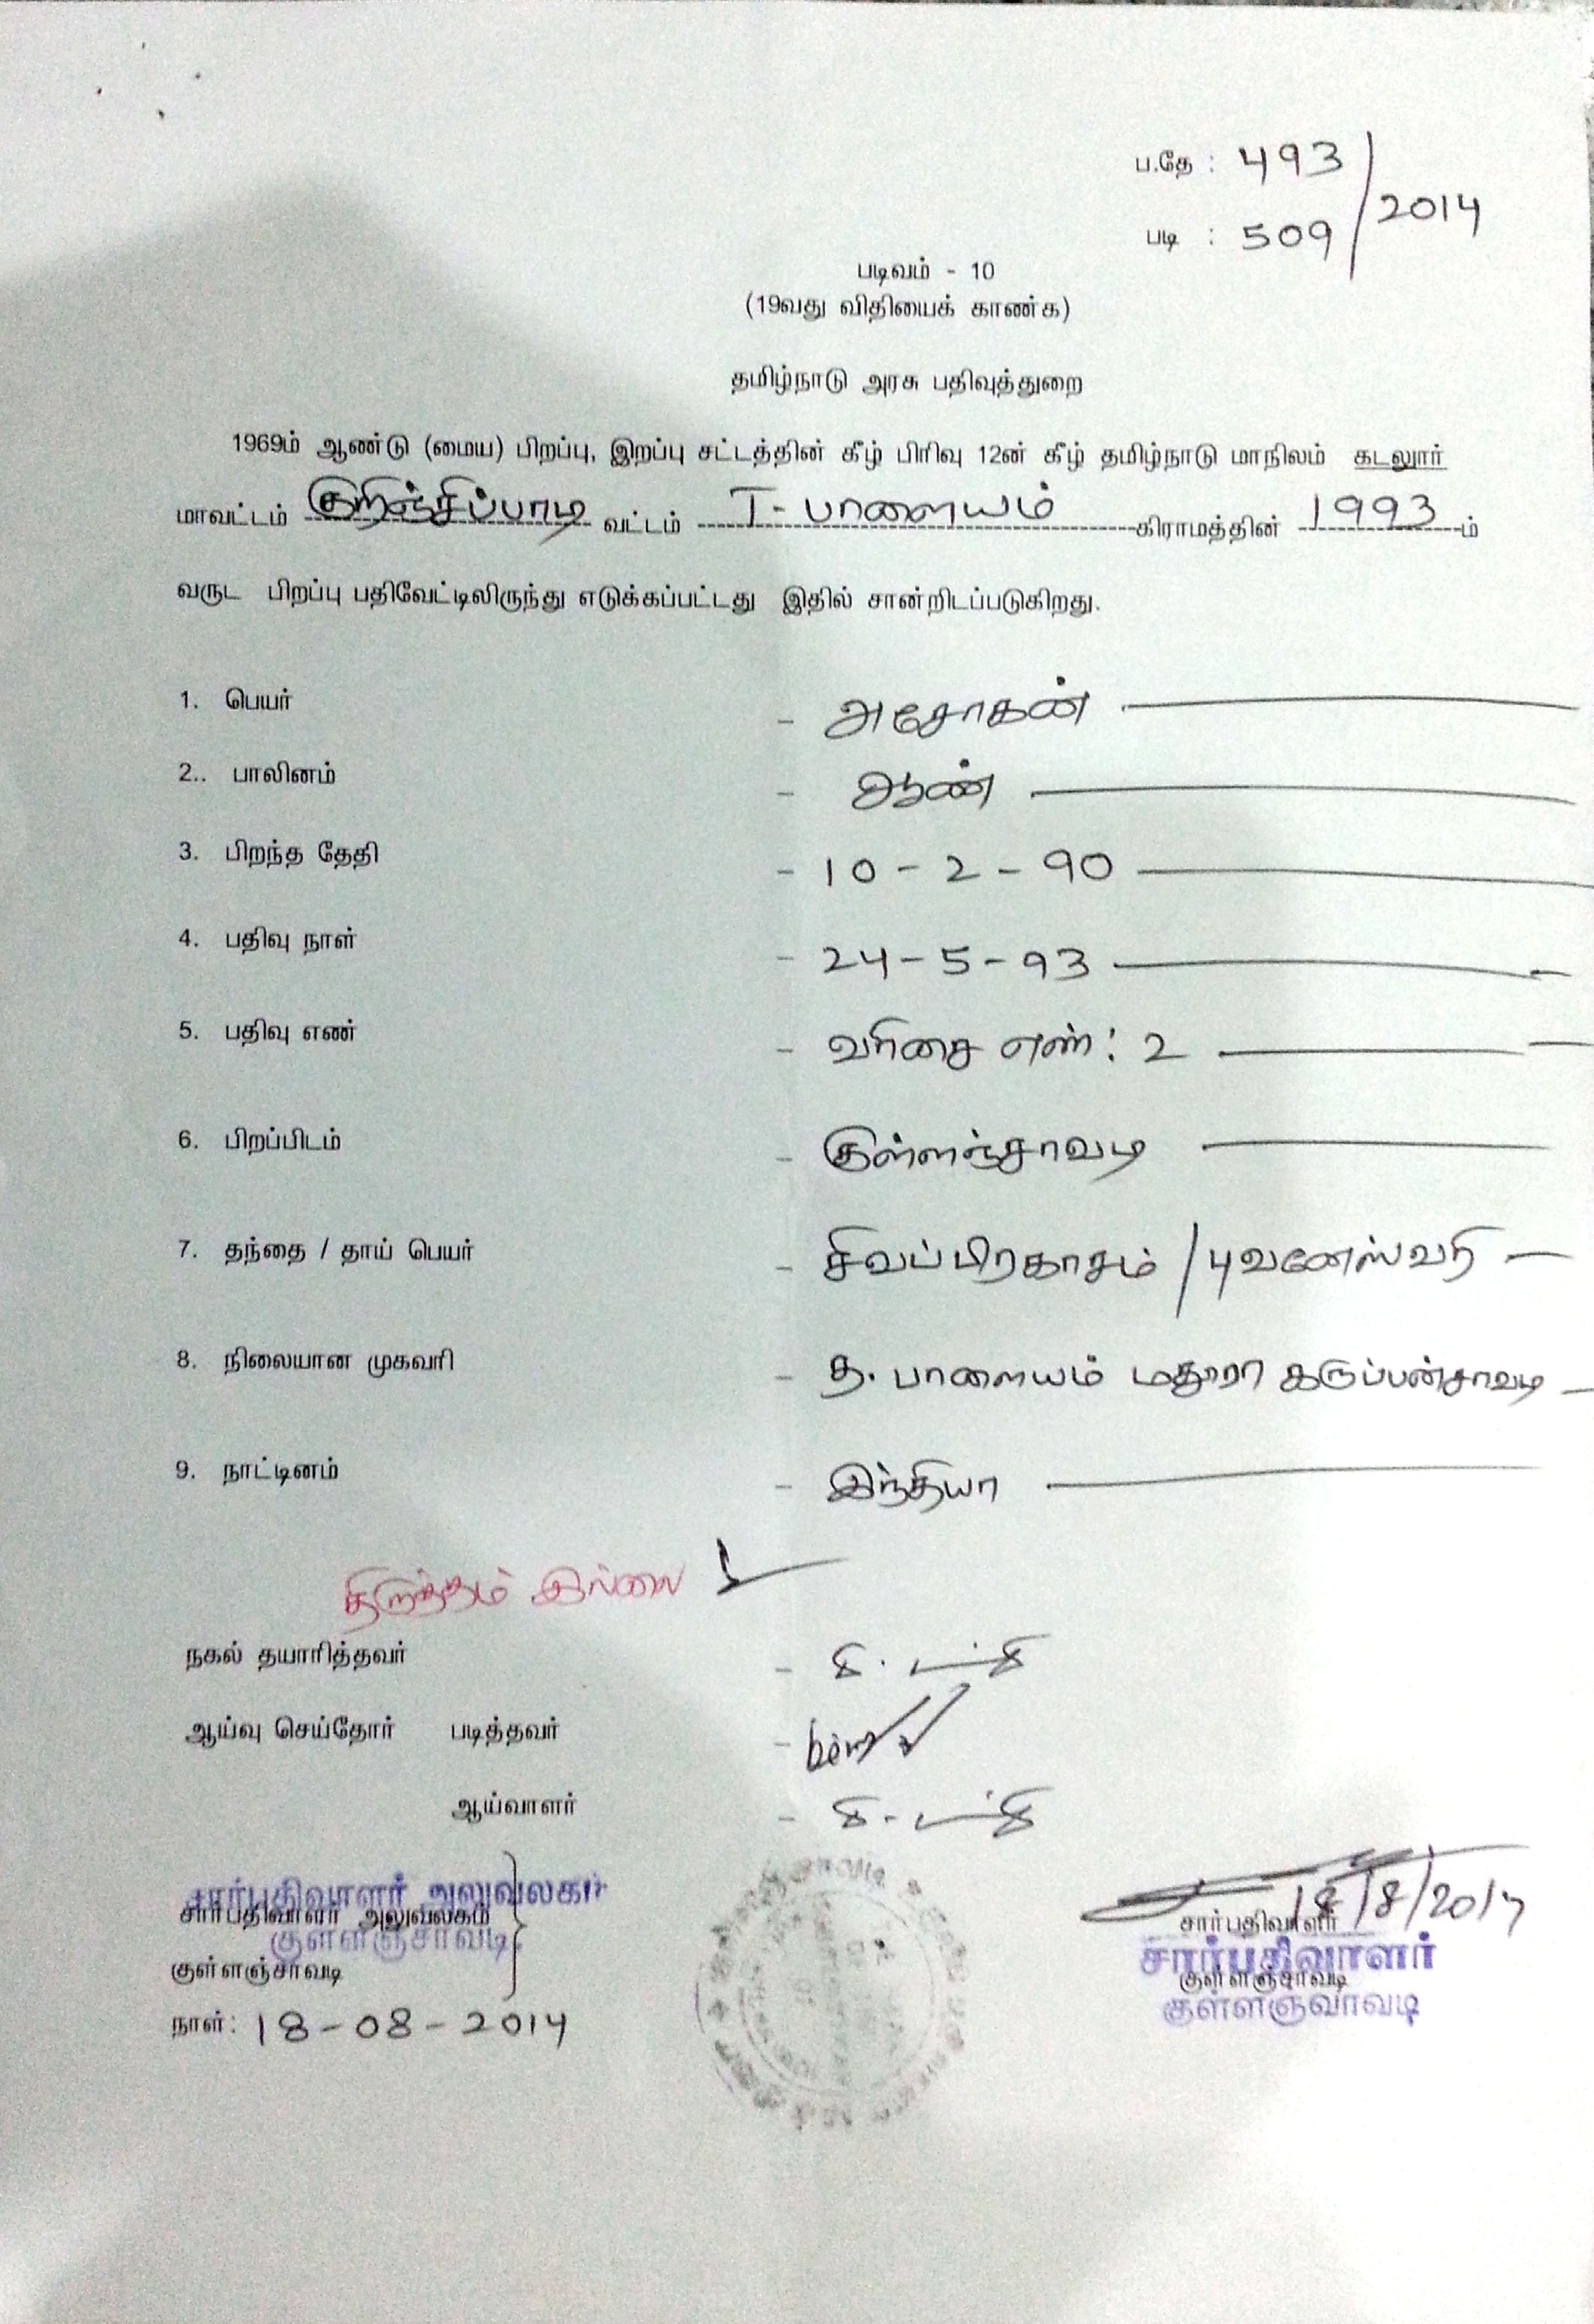 ப.தே : 493 / 2014
படி : 509
படிவம் - 10
(19வது விதியைக் காண்க)
தமிழ்நாடு அரசு பதிவுத்துறை
1969ம் ஆண்டு (மைய) பிறப்பு, இறப்பு சட்டத்தின் கீழ் பிரிவு 12ன் கீழ் தமிழ்நாடு மாநிலம் கடலூர்
மாவட்டம் குறிஞ்சிப்பாடி வட்டம் T- பாளையம் கிராமத்தின் 1993ம்
வருட பிறப்பு பதிவேட்டிலிருந்து எடுக்கப்பட்டது இதில் சான்றிடப்படுகிறது.
1. பெயர் - அசோகன்
2.. பாலினம் - ஆண்
3. பிறந்த தேதி - 10 - 2 - 90
4. பதிவு நாள் - 24 - 5 - 93
5. பதிவு எண் - வரிசை எண்: 2
6. பிறப்பிடம் - குள்ளஞ்சாவடி
7. தந்தை / தாய் பெயர் - சிவப்பிரகாசம் / புவனேஸ்வரி
8. நிலையான முகவரி - த. பாளையம் மதுரா கருப்பன்சாவடி
9. நாட்டினம் - இந்தியா
திருத்தம் இல்லை
நகல் தயாரித்தவர் -
ஆய்வு செய்தோர் படித்தவர் -
ஆய்வாளர் -
சார்பதிவாளர் அலுவலகம்
சார்பதிவாளர் அலுவலகம்
குள்ளஞ்சாவடி
குள்ளஞ்சாவடி
நாள்: 18-08-2014
18/8/2014
சார்பதிவாளர்
சார்பதிவாளர்
குள்ளஞ்சாவடி
குள்ளஞ்சாவடி